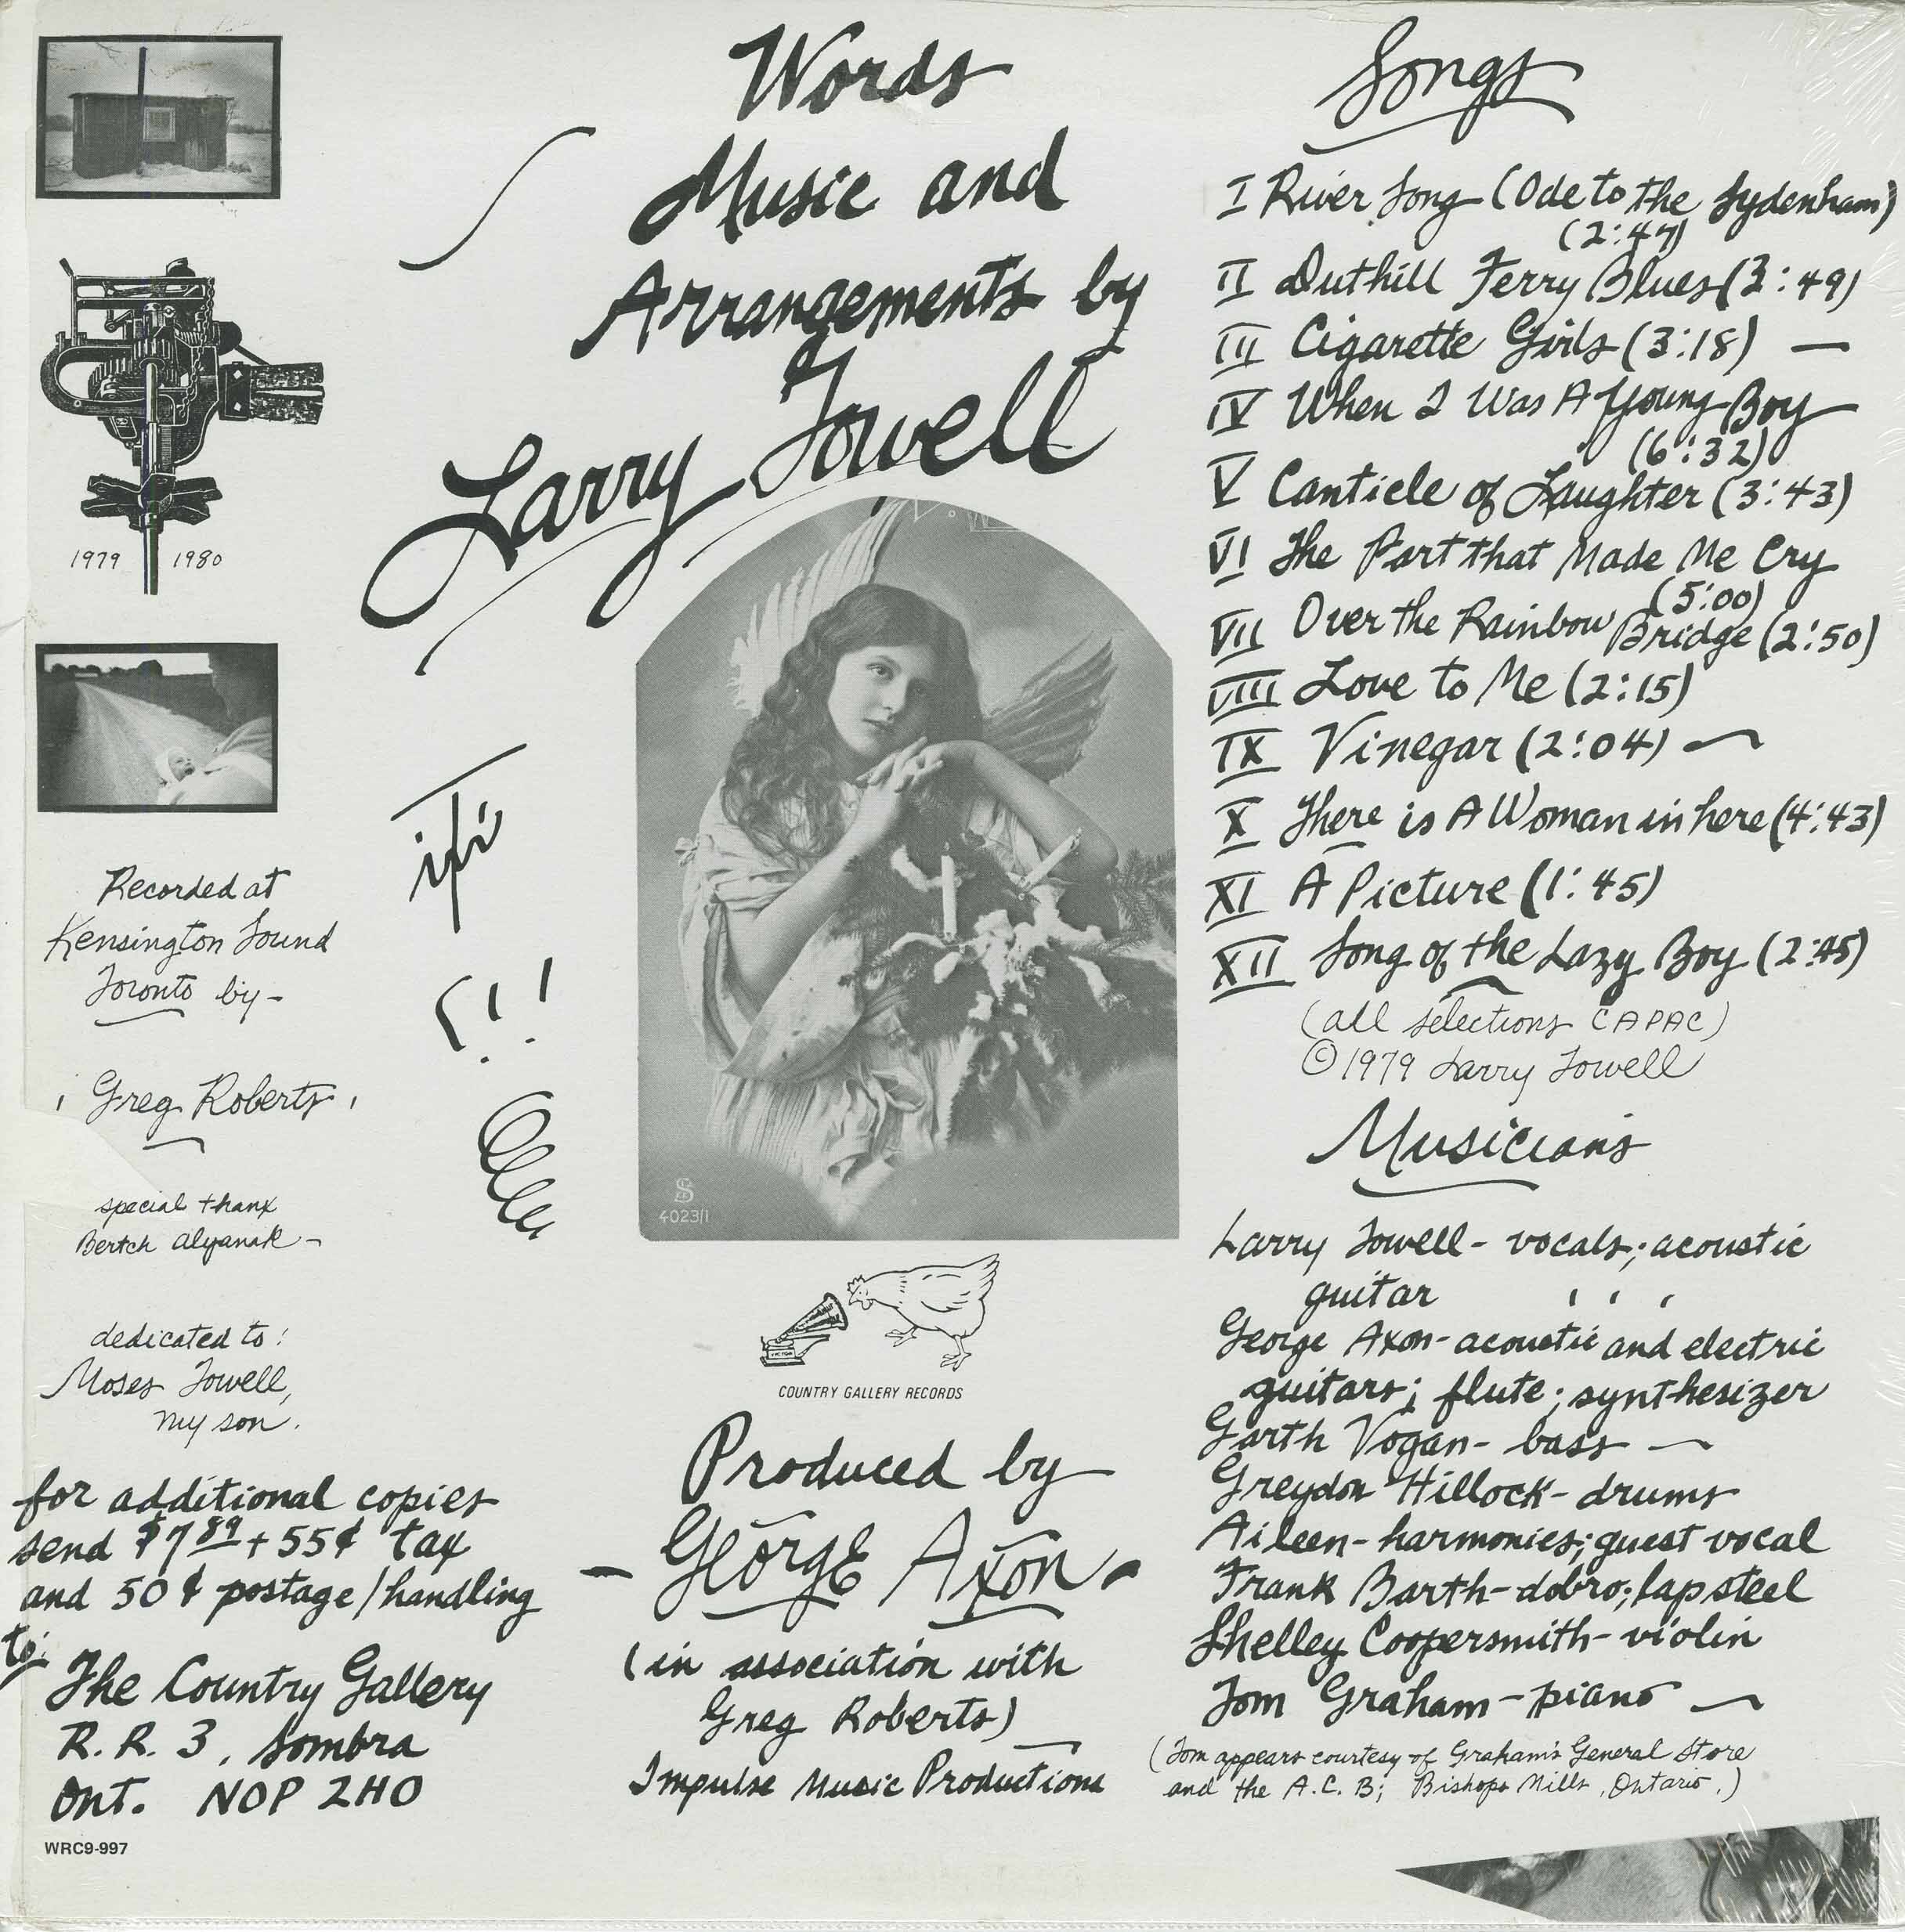 Words
Music and
Arrangements by
Larry Towell
1979 1980
Recorded at
Kensington Sound
Toronto by-
Greg Roberts
special thanx
Bertch Alyanak -
dedicated to:
Moses Towell,
my son.
for additional copies
send $7 89 + 55¢ tax
and 50¢ postage/handling
to:
The Country Gallery
R. R. 3, Sombra
Ont. N0P 2H0
WRC9-997
4023/1
VICTOR
COUNTRY GALLERY RECORDS
Produced by
- George Axon -
(in association with
Greg Roberts)
Impulse Music Productions
Songs
I River Song (Ode to the Sydenham)
(2:47)
II Duthill Ferry Blues (3:49)
III Cigarette Girls (3:18) —
IV When I Was A Young Boy
(6:32)
V Canticle of Laughter (3:43)
VI The Part that Made Me Cry
(5:00)
VII Over the Rainbow Bridge (2:50)
VIII Love to Me (2:15)
IX Vinegar (2:04) —
X There is A Woman in here (4:43)
XI A Picture (1:45)
XII Song of the Lazy Boy (2:45)
(all selections CAPAC)
© 1979 Larry Towell
Musicians
Larry Towell - vocals; acoustic
guitar
George Axon - acoustic and electric
guitars; flute; synthesizer
Garth Vogan - bass —
Greydon Hillock - drums
Aileen - harmonies; guest vocal
Frank Barth - dobro; lap steel
Shelley Coopersmith - violin
Tom Graham - piano —
(Tom appears courtesy of Graham's General Store
and the A.C.B; Bishops Mills, Ontario.)